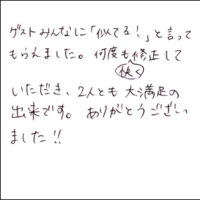 ゲストみんなに「似てる！」と言って
もらえました。何度も快く修正して
いただき、2人とも大満足の
出来です。ありがとうござい
ました!!